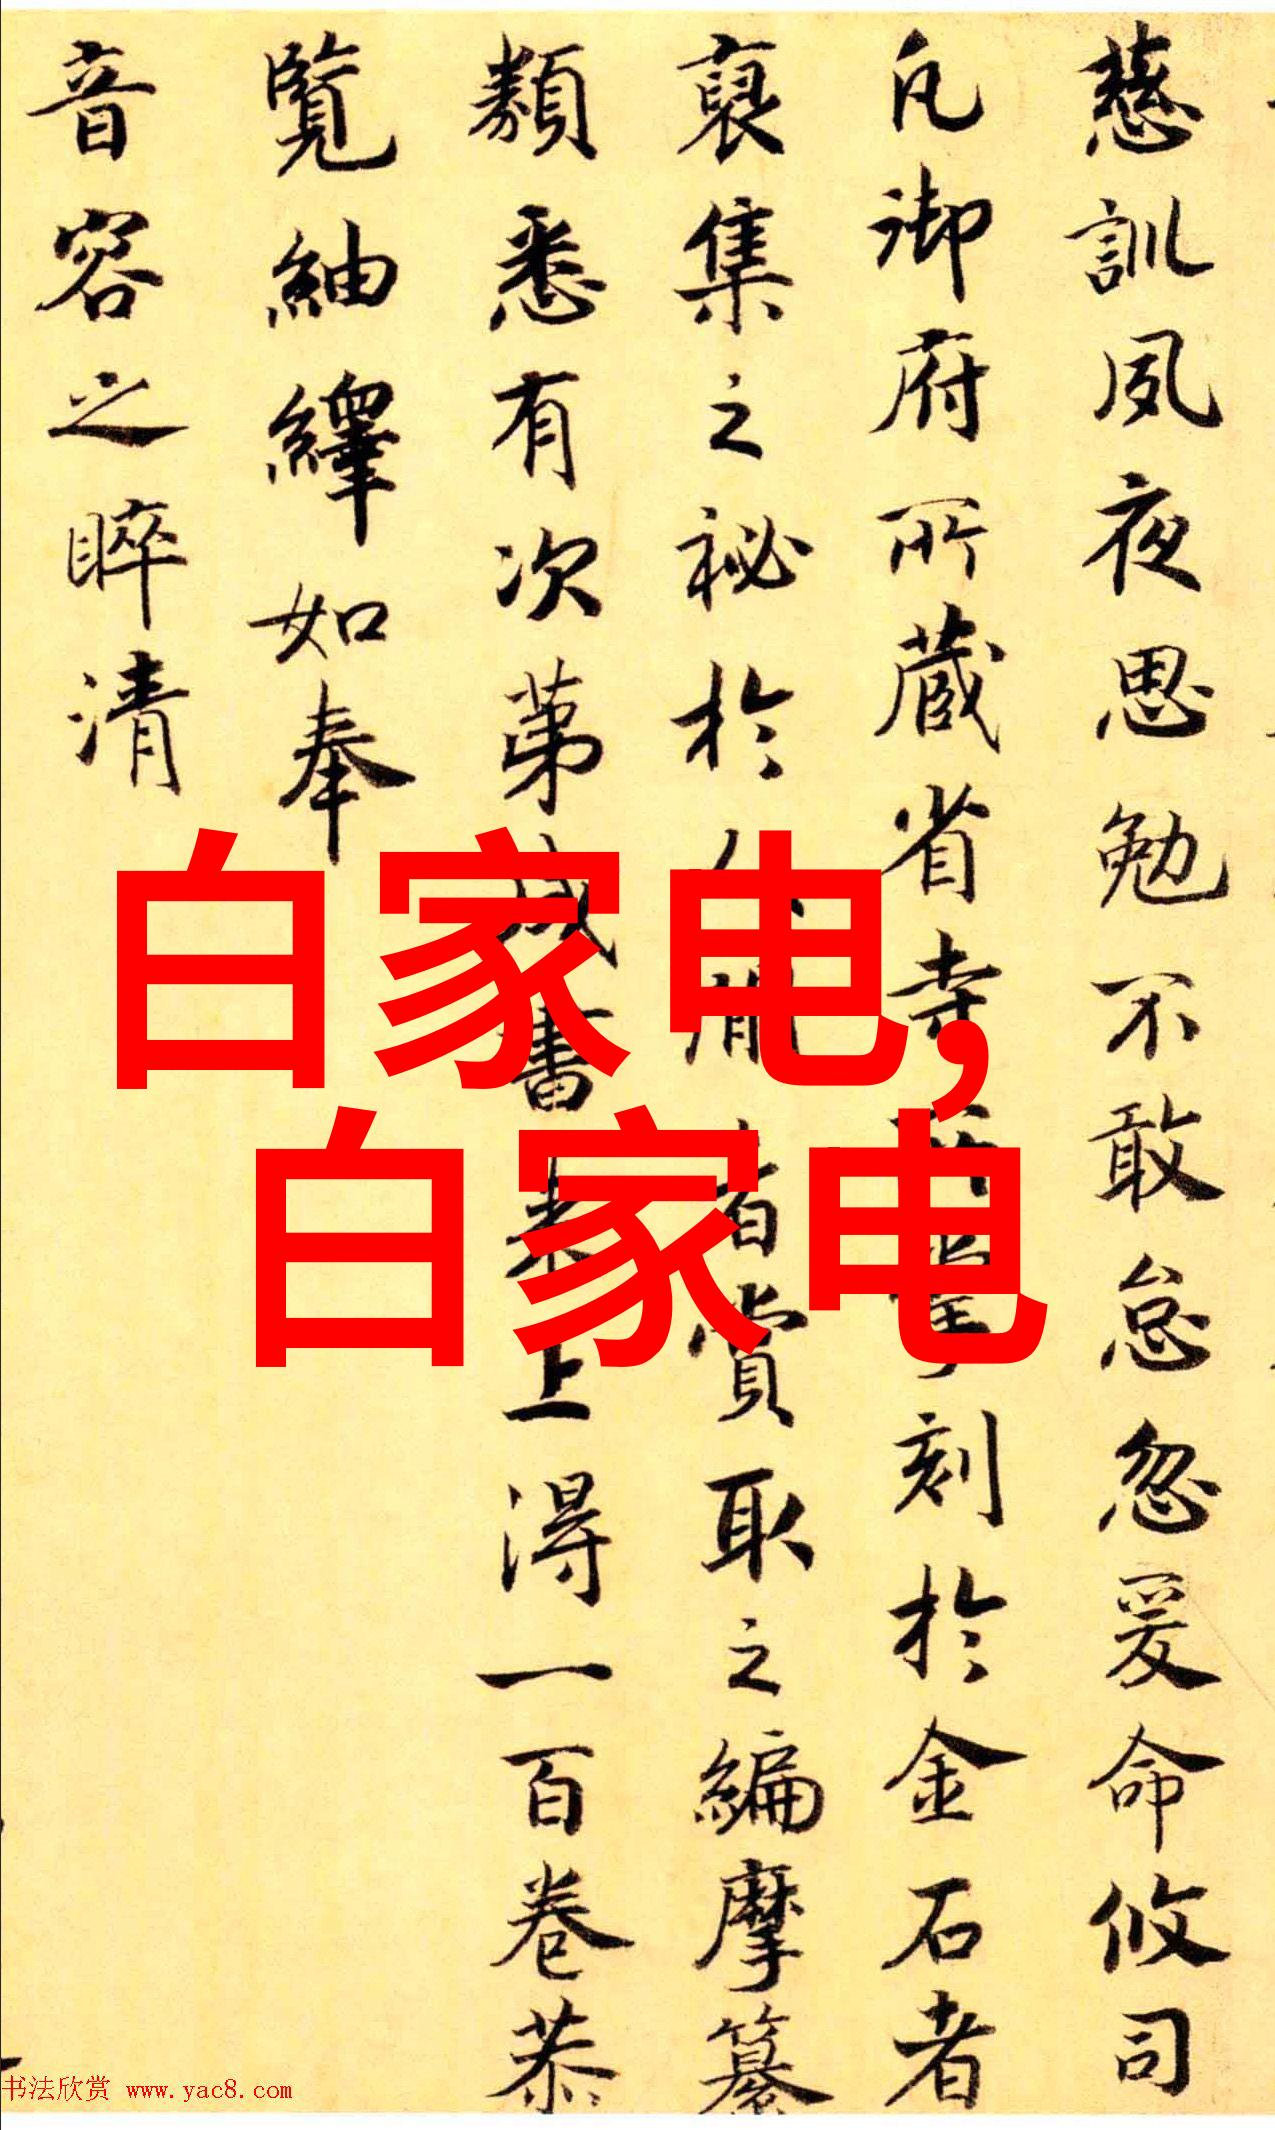 慈訓夙夜思勉不敢怠忽爰命攸司
凡御府所蔵省寺所掌刻於金石者
裒集之祕於人間者賞取之編摩纂
類悉有次苐成書来上得一百卷恭
覧紬繹如奉
音容之睟清
白家电,
白家电
书法欣赏 www.yac8.com